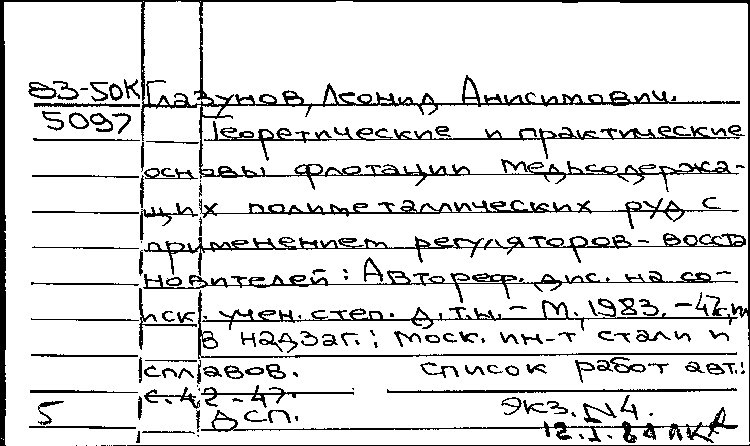 83-50К Глазунов, Леонид Анисимович.
5097 Теоретические и практические
основы флотации медьсодержа-
щих полиметаллических руд с
применением регуляторов-восста
новителей: Автореф. дис. на со-
иск. учен. степ. д.т.н. - М., 1983. - 47с.
В надзаг.: Моск. ин-т стали и
сплавов. Список работ авт.:
с. 42-47.
5 ДСП. Экз. N4.
12.1.84